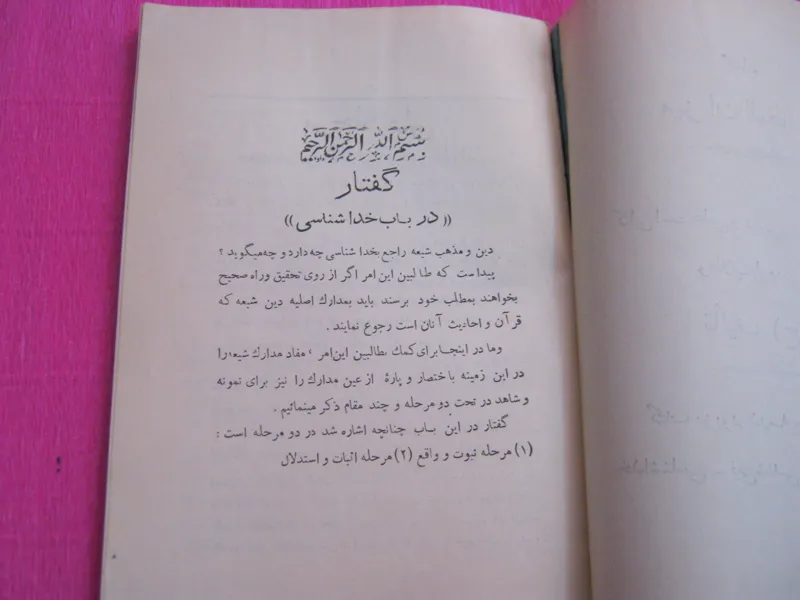 بسم الله الرحمن الرحیم
گفتار
((در باب خدا شناسی))
دین و مذهب شیعه راجع بخدا شناسی چه دارد و چه میگوید ؟
پیداست که طالبین این امر اگر از روی تحقیق وراه صحیح
بخواهند بمطلب خود برسند باید بمدارك اصلیه دین شیعه که
قرآن و احادیث آنان است رجوع نمایند .
وما در اینجا برای کمك بطالبین این امر ، مفاد مدارك شیعه را
در این زمینه باختصار و پارهٔ از عین مدارك را نیز برای نمونه
و شاهد در تحت دو مرحله و چند مقام ذکر مینمائیم .
گفتار در این باب چنانچه اشاره شد در دو مرحله است :
(۱) مرحله ثبوت و واقع (۲) مرحله اثبات و استدلال